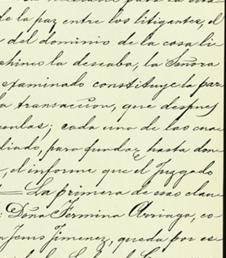 de la paz entre los litigantes, el
del dominio de la cosa li
la deseaba, la Señora
estaminado constituye la par
a transaccion, que despues
cada uno de las cua
liado, para fundar, hasta don
, el informe que el Juzgado
= La primera de esas clau
: Doña Fermina Arriaga, es
Jesus Jimenez, queda por es